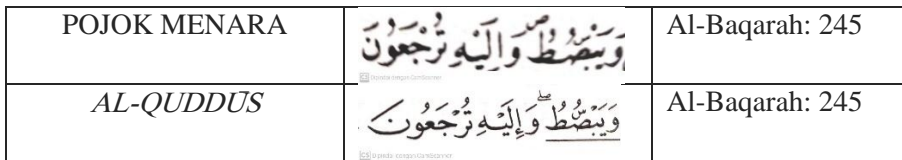 POJOK MENARA وَيَبْصُۣطُ وَاِلَيْهِ تُرْجَعُوْنَ Al-Baqarah: 245
AL-QUDDŪS وَيَبْصُۜطُ وَإِلَيْهِ تُرْجَعُونَ Al-Baqarah: 245